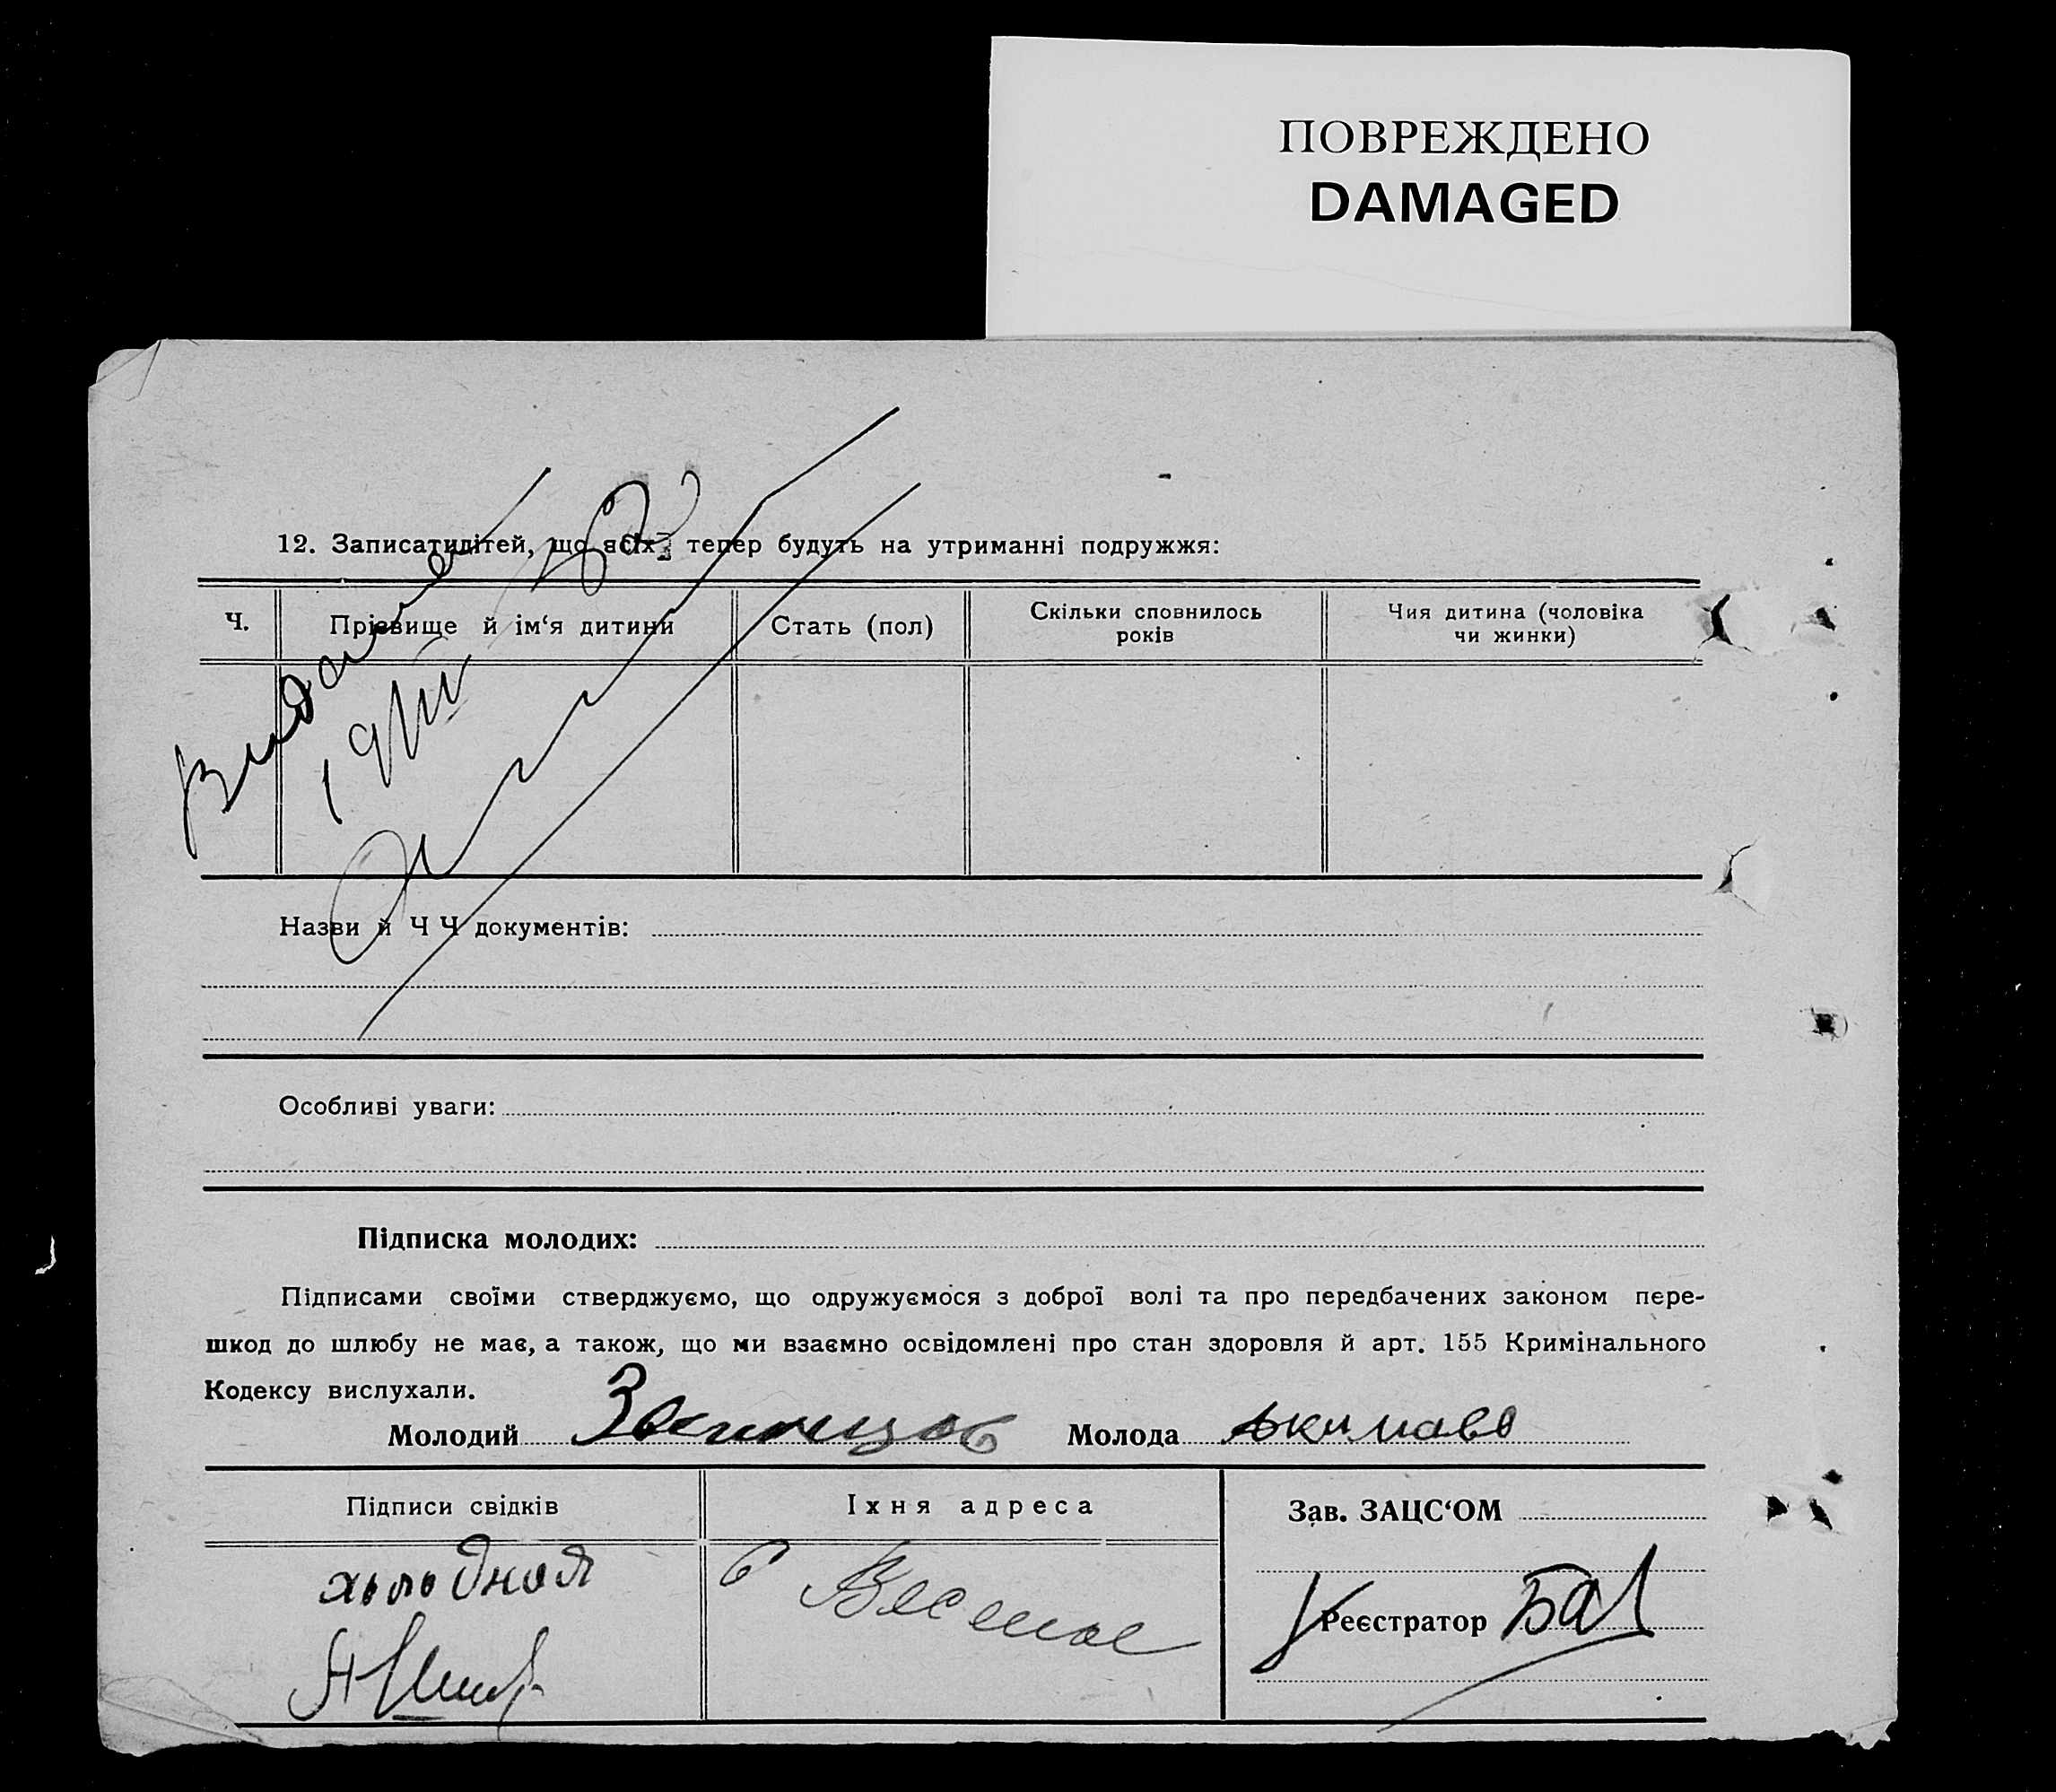 ПОВРЕЖДЕНО
DAMAGED
12. Записати дітей, що всіх тепер будуть на утриманні подружжя:
Ч.
Прізвище й ім‘я дитини
Стать (пол)
Скільки сповнилось
років
Чия дитина (чоловіка
чи жинки)
Назви й Ч Ч документів:
Особливі уваги:
Підписка молодих:
Підписами своїми стверджуємо, що одружуємося з доброї волі та про передбачених законом пере-
шкод до шлюбу не має, а також, що ми взаємно освідомлені про стан здоровля й арт. 155 Кримінального
Кодексу вислухали.
Молодий
Молода Акимова
Підписи свідків
Їхня адреса
Зав. ЗАЦС‘ОМ
холодная
с Веселое
Реєстратор